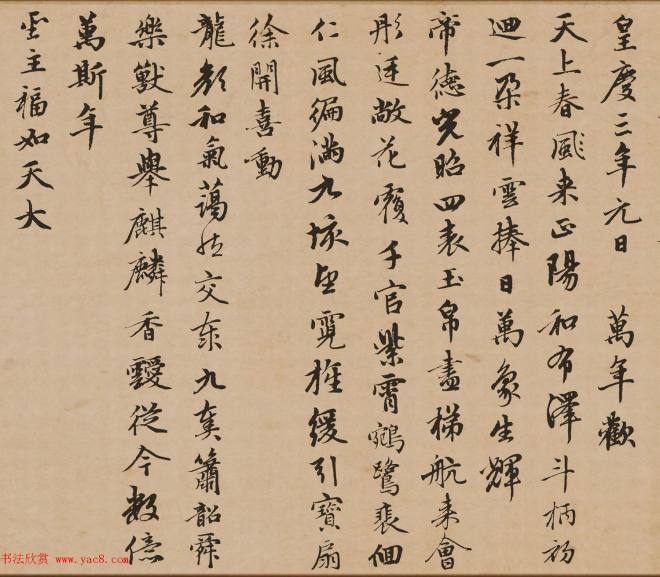 皇慶三年元日 萬年歡
天上春風来正陽和布澤斗柄初
迴一朶祥雲捧日萬象生輝
帝德光昭四表玉帛盡梯航来會
彤廷敞花覆千官紫霄鵷鷺裴佪
仁風徧滿九垓望霓旌緩引寶扇
徐開喜動
龍顔和氣藹然交泰九奏簫韶舜
樂獸尊舉麒麟香靉從今數億
萬斯年
聖主福如天大
书法欣赏 www.yac8.com